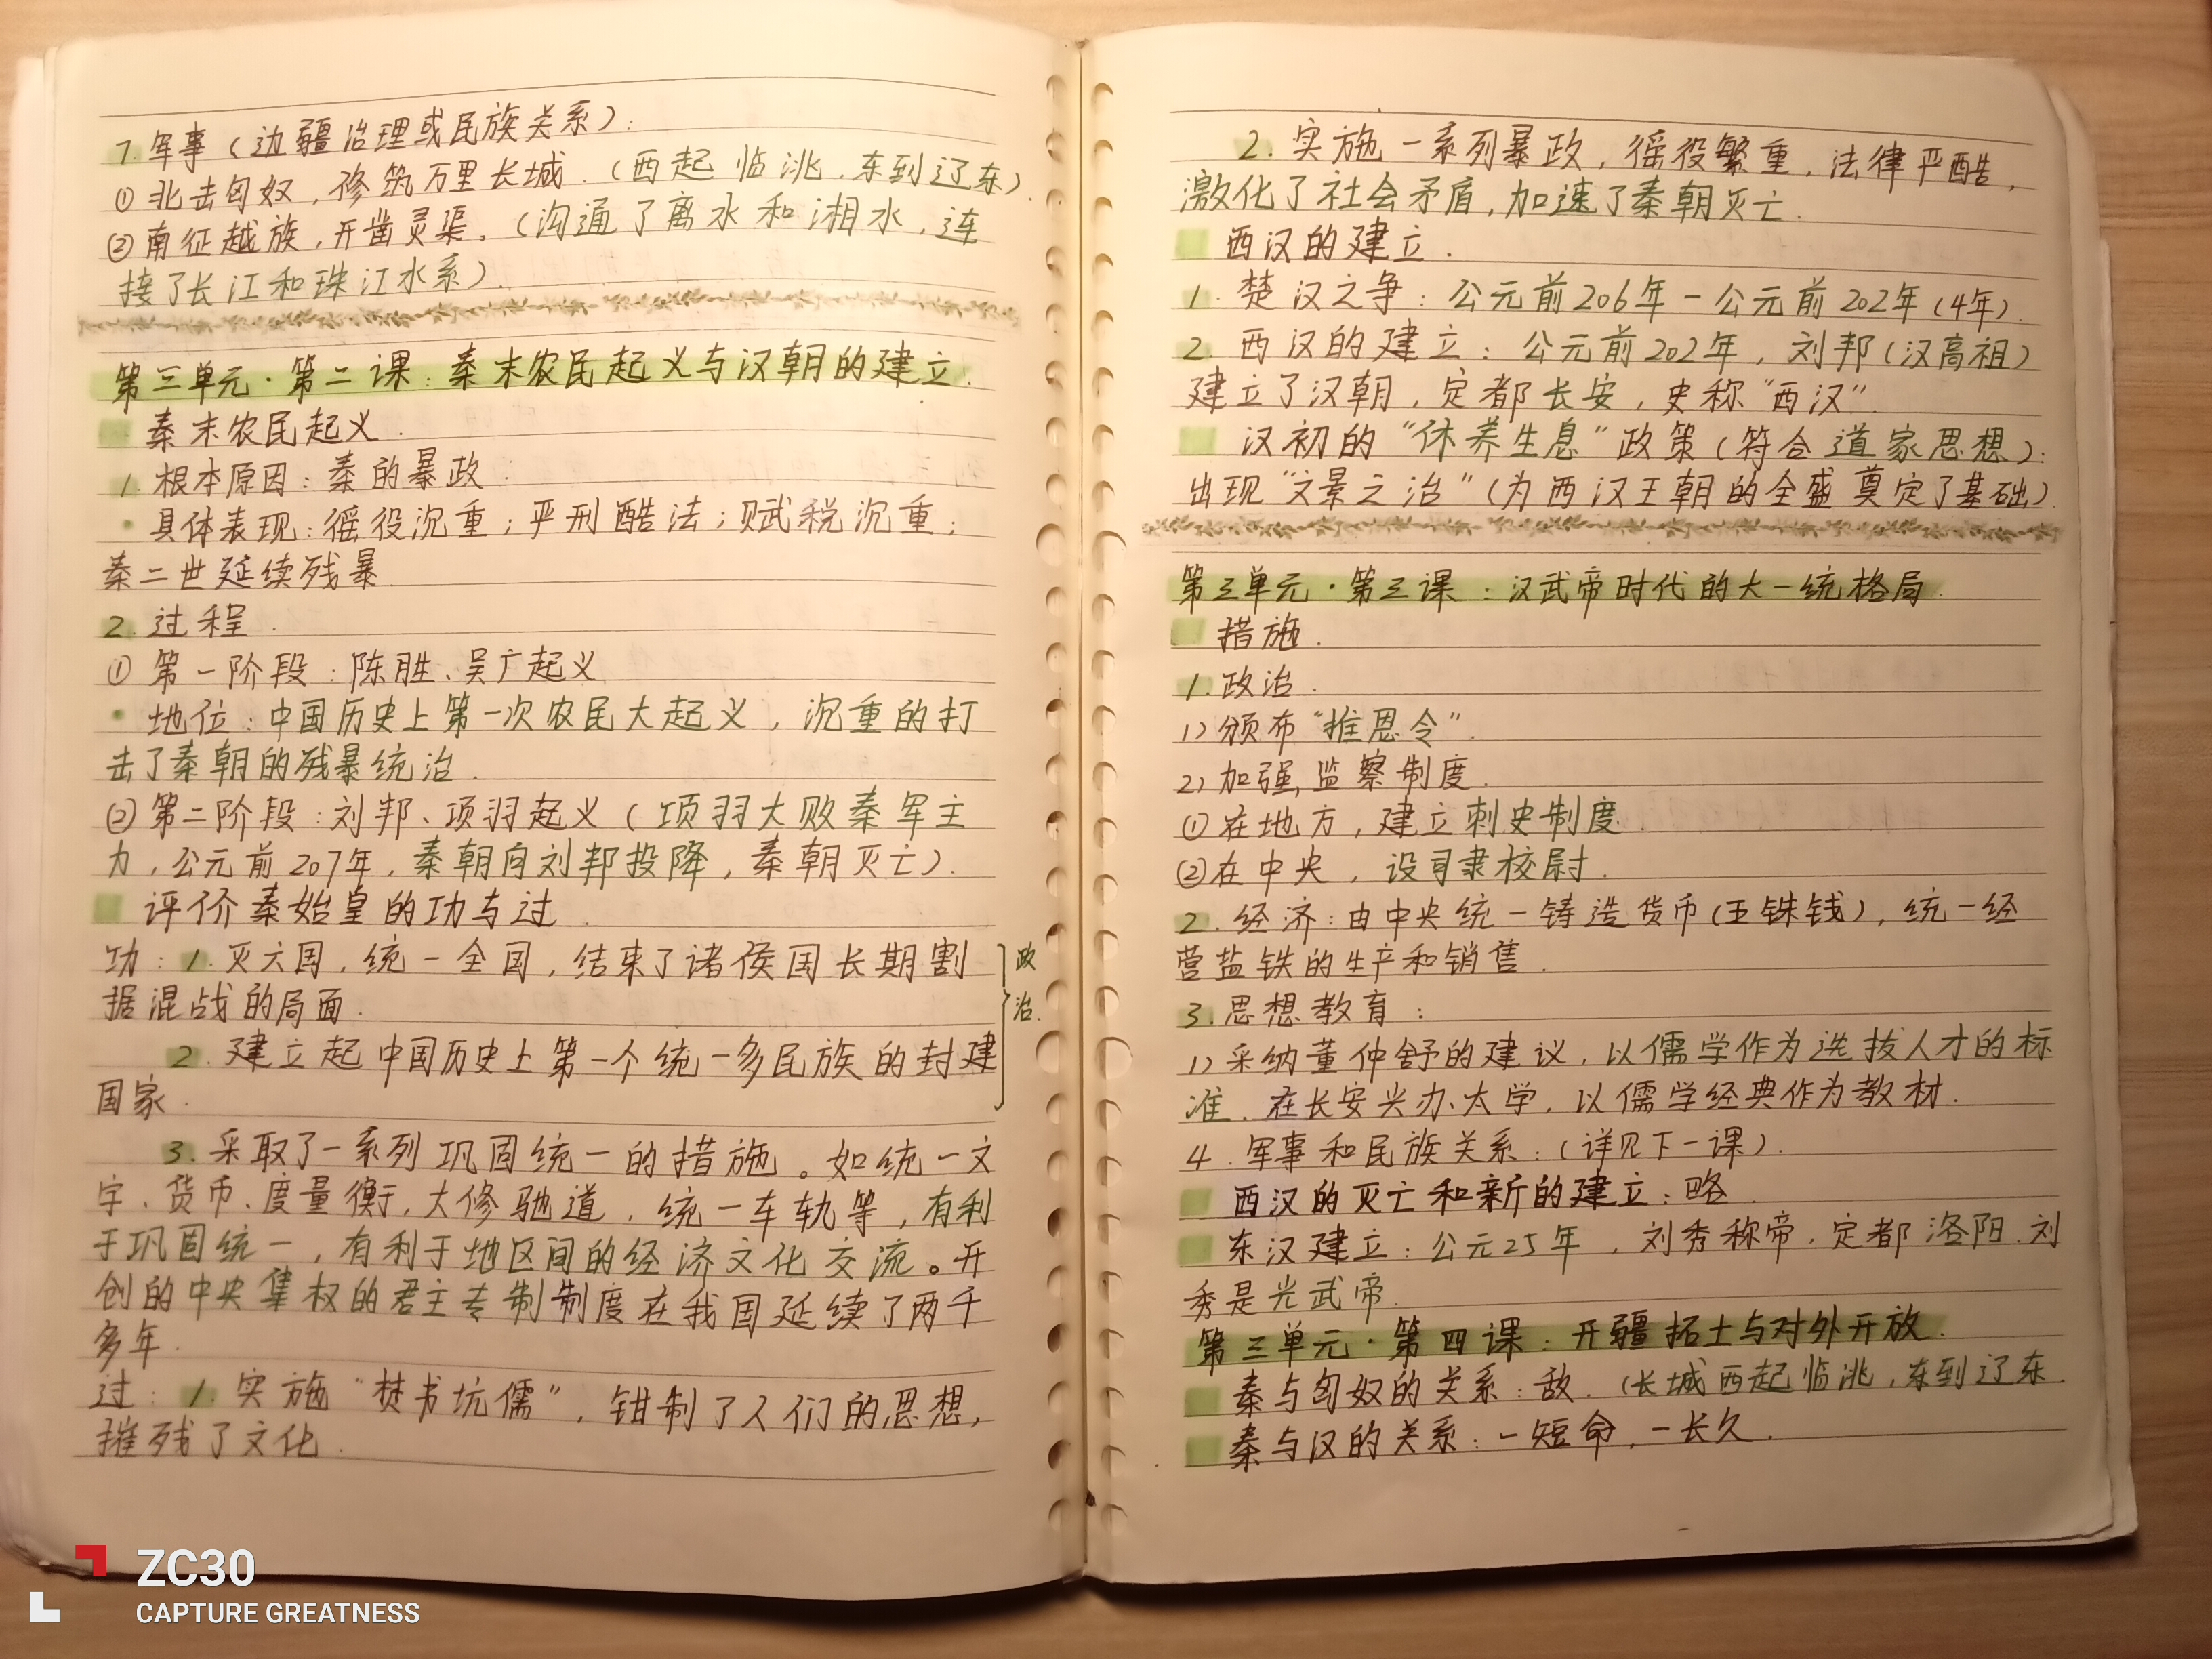 7.军事（边疆治理或民族关系）：
①北击匈奴，修筑万里长城.（西起临洮，东到辽东）.
②南征越族，开凿灵渠。（沟通了离水和湘水，连
接了长江和珠江水系）
第三单元·第二课：秦末农民起义与汉朝的建立.
秦末农民起义.
1.根本原因：秦的暴政.
·具体表现：徭役沉重；严刑酷法；赋税沉重；
秦二世延续残暴
2.过程.
①第一阶段：陈胜、吴广起义
·地位：中国历史上第一次农民大起义，沉重的打
击了秦朝的残暴统治.
②第二阶段：刘邦、项羽起义（项羽大败秦军主
力，公元前207年，秦朝向刘邦投降，秦朝灭亡）.
评价秦始皇的功与过.
功：1.灭六国，统一全国，结束了诸侯国长期割
据混战的局面.
2.建立起中国历史上第一个统一多民族的封建
国家.
政
治.
3.采取了一系列巩固统一的措施。如统一文
字、货币、度量衡，大修驰道，统一车轨等，有利
于巩固统一，有利于地区间的经济文化交流。开
创的中央集权的君主专制制度在我国延续了两千
多年.
过：1.实施“焚书坑儒”，钳制了人们的思想，
摧残了文化.
2.实施一系列暴政，徭役繁重，法律严酷，
激化了社会矛盾，加速了秦朝灭亡.
西汉的建立.
1.楚汉之争：公元前206年－公元前202年（4年）.
2.西汉的建立：公元前202年，刘邦（汉高祖）
建立了汉朝，定都长安，史称“西汉”.
汉初的“休养生息”政策（符合道家思想）：
出现“文景之治”（为西汉王朝的全盛奠定了基础）.
第三单元·第三课：汉武帝时代的大一统格局.
措施.
1.政治.
1)颁布“推恩令”.
2)加强监察制度.
①在地方，建立刺史制度.
②在中央，设司隶校尉.
2.经济：由中央统一铸造货币（五铢钱），统一经
营盐铁的生产和销售.
3.思想教育：
1)采纳董仲舒的建议，以儒学作为选拔人才的标
准.在长安兴办太学，以儒学经典作为教材.
4.军事和民族关系：（详见下一课）.
西汉的灭亡和新的建立：略.
东汉建立：公元25年，刘秀称帝，定都洛阳.刘
秀是光武帝.
第三单元·第四课：开疆拓土与对外开放.
秦与匈奴的关系：敌.（长城西起临洮，东到辽东.
秦与汉的关系：一短命，一长久.
ZC30
CAPTURE GREATNESS